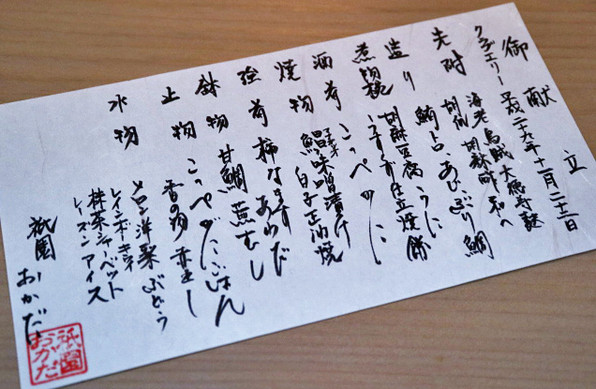 御献立
クラブエリー 平成二十六年十一月二十二日
先附 海老 烏賊 大徳寺麩
胡瓜 胡麻酢和へ
造り 鮪 あぶり鯛
煮物椀 胡麻豆腐 うに
仕立 焼餅
酒肴 こっぺがに
焼物 味噌漬け
白子正油焼
強肴 柿なます あわび
鉢物 甘鯛蕪むし
止物 こっぺがにごはん
香の物 赤だし
水物 メロン 洋梨 ぶどう
レインボーキウイ
抹茶シャーベット
レーズンアイス
祇園 おかだ
祇園おかだ